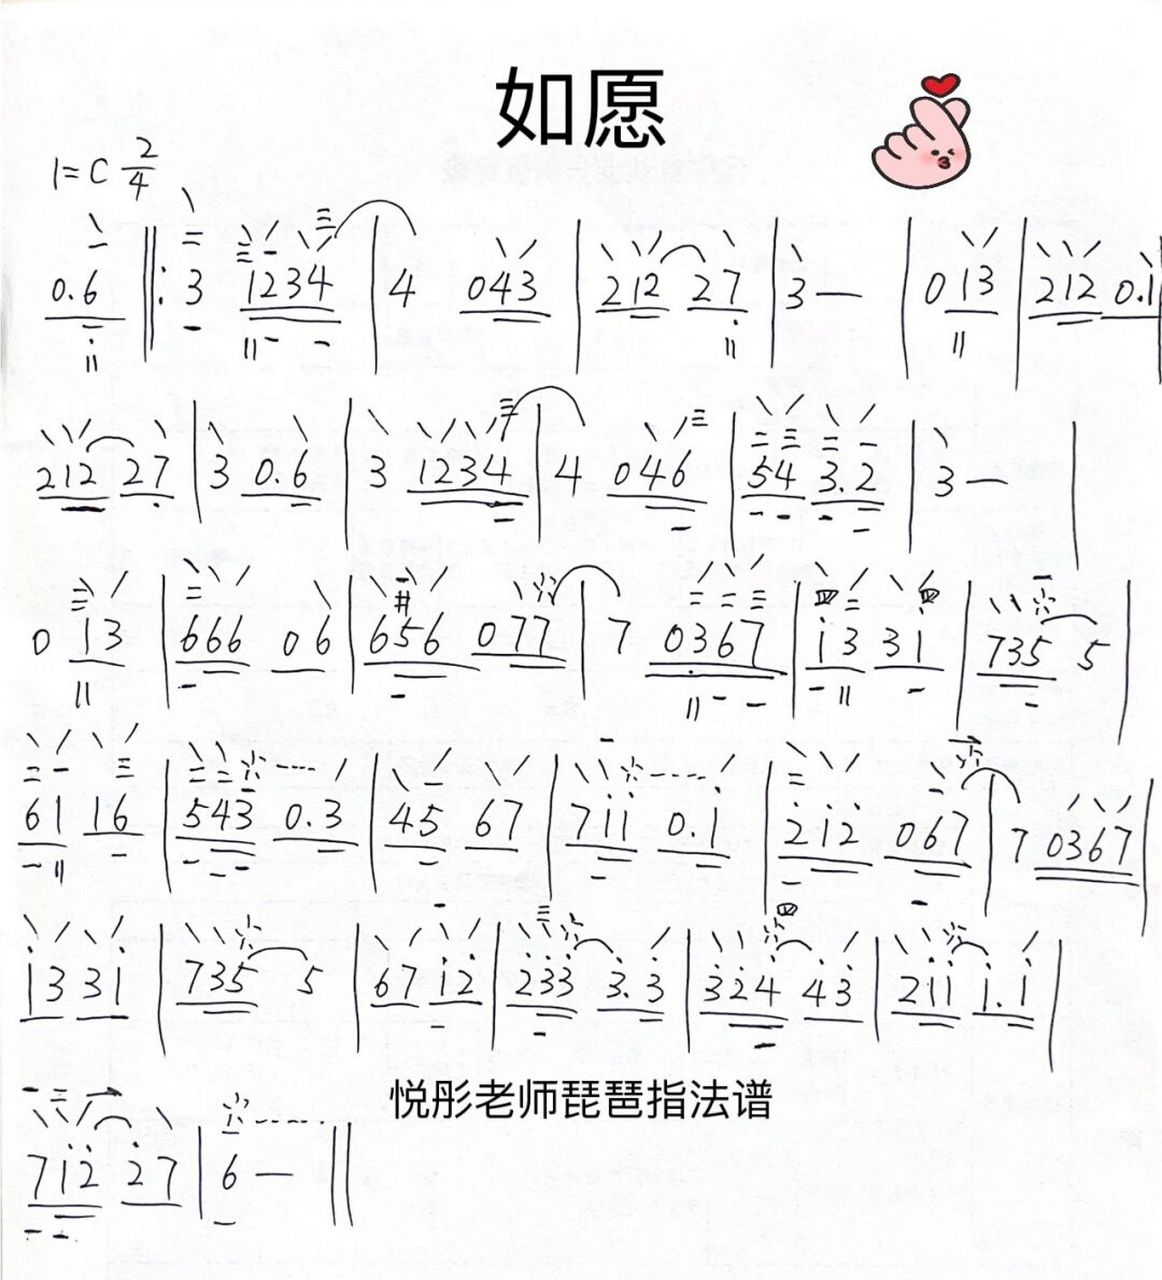 如愿
1=C 2/4
0.6 ‖: 3 1234 | 4 043 | 212 27 | 3 — | 0 13 | 212 0.1
212 27 | 3 0.6 | 3 1234 | 4 046 | 54 3.2 | 3 — |
0 13 | 666 06 | 6#56 077 | 7 0367 | i3 31̇ | 735 5 |
61 16 | 543 0.3 | 45 67 | 71̇1̇ 0.1̇ | 2̇1̇2̇ 067 | 7 0367 |
1̇3 31̇ | 735 5 | 67 1̇2̇ | 2̇3̇3̇ 3̇.3̇ | 3̇2̇4̇ 4̇3̇ | 2̇1̇1̇ 1̇.1̇ |
悦彤老师琵琶指法谱
71̇2̇ 2̇7 | 6 — ‖